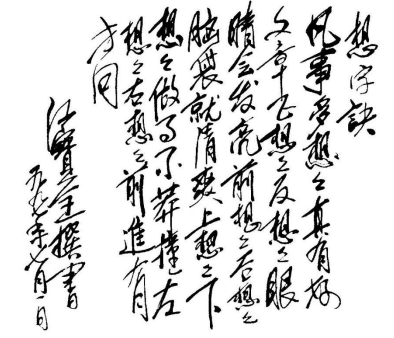 想字訣
凡事多想々真有好
文章正想々反想々眼
睛会发亮前想々后想々
脑袋就清爽上想々下
想々做事不莽撞左
想々右想々前進有
方向
寶全撰書
九七年七月一日